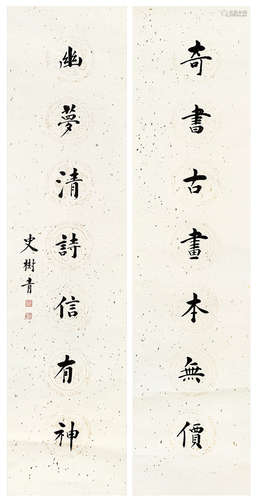 奇書古畫本無價
幽夢清詩信有神
史樹青